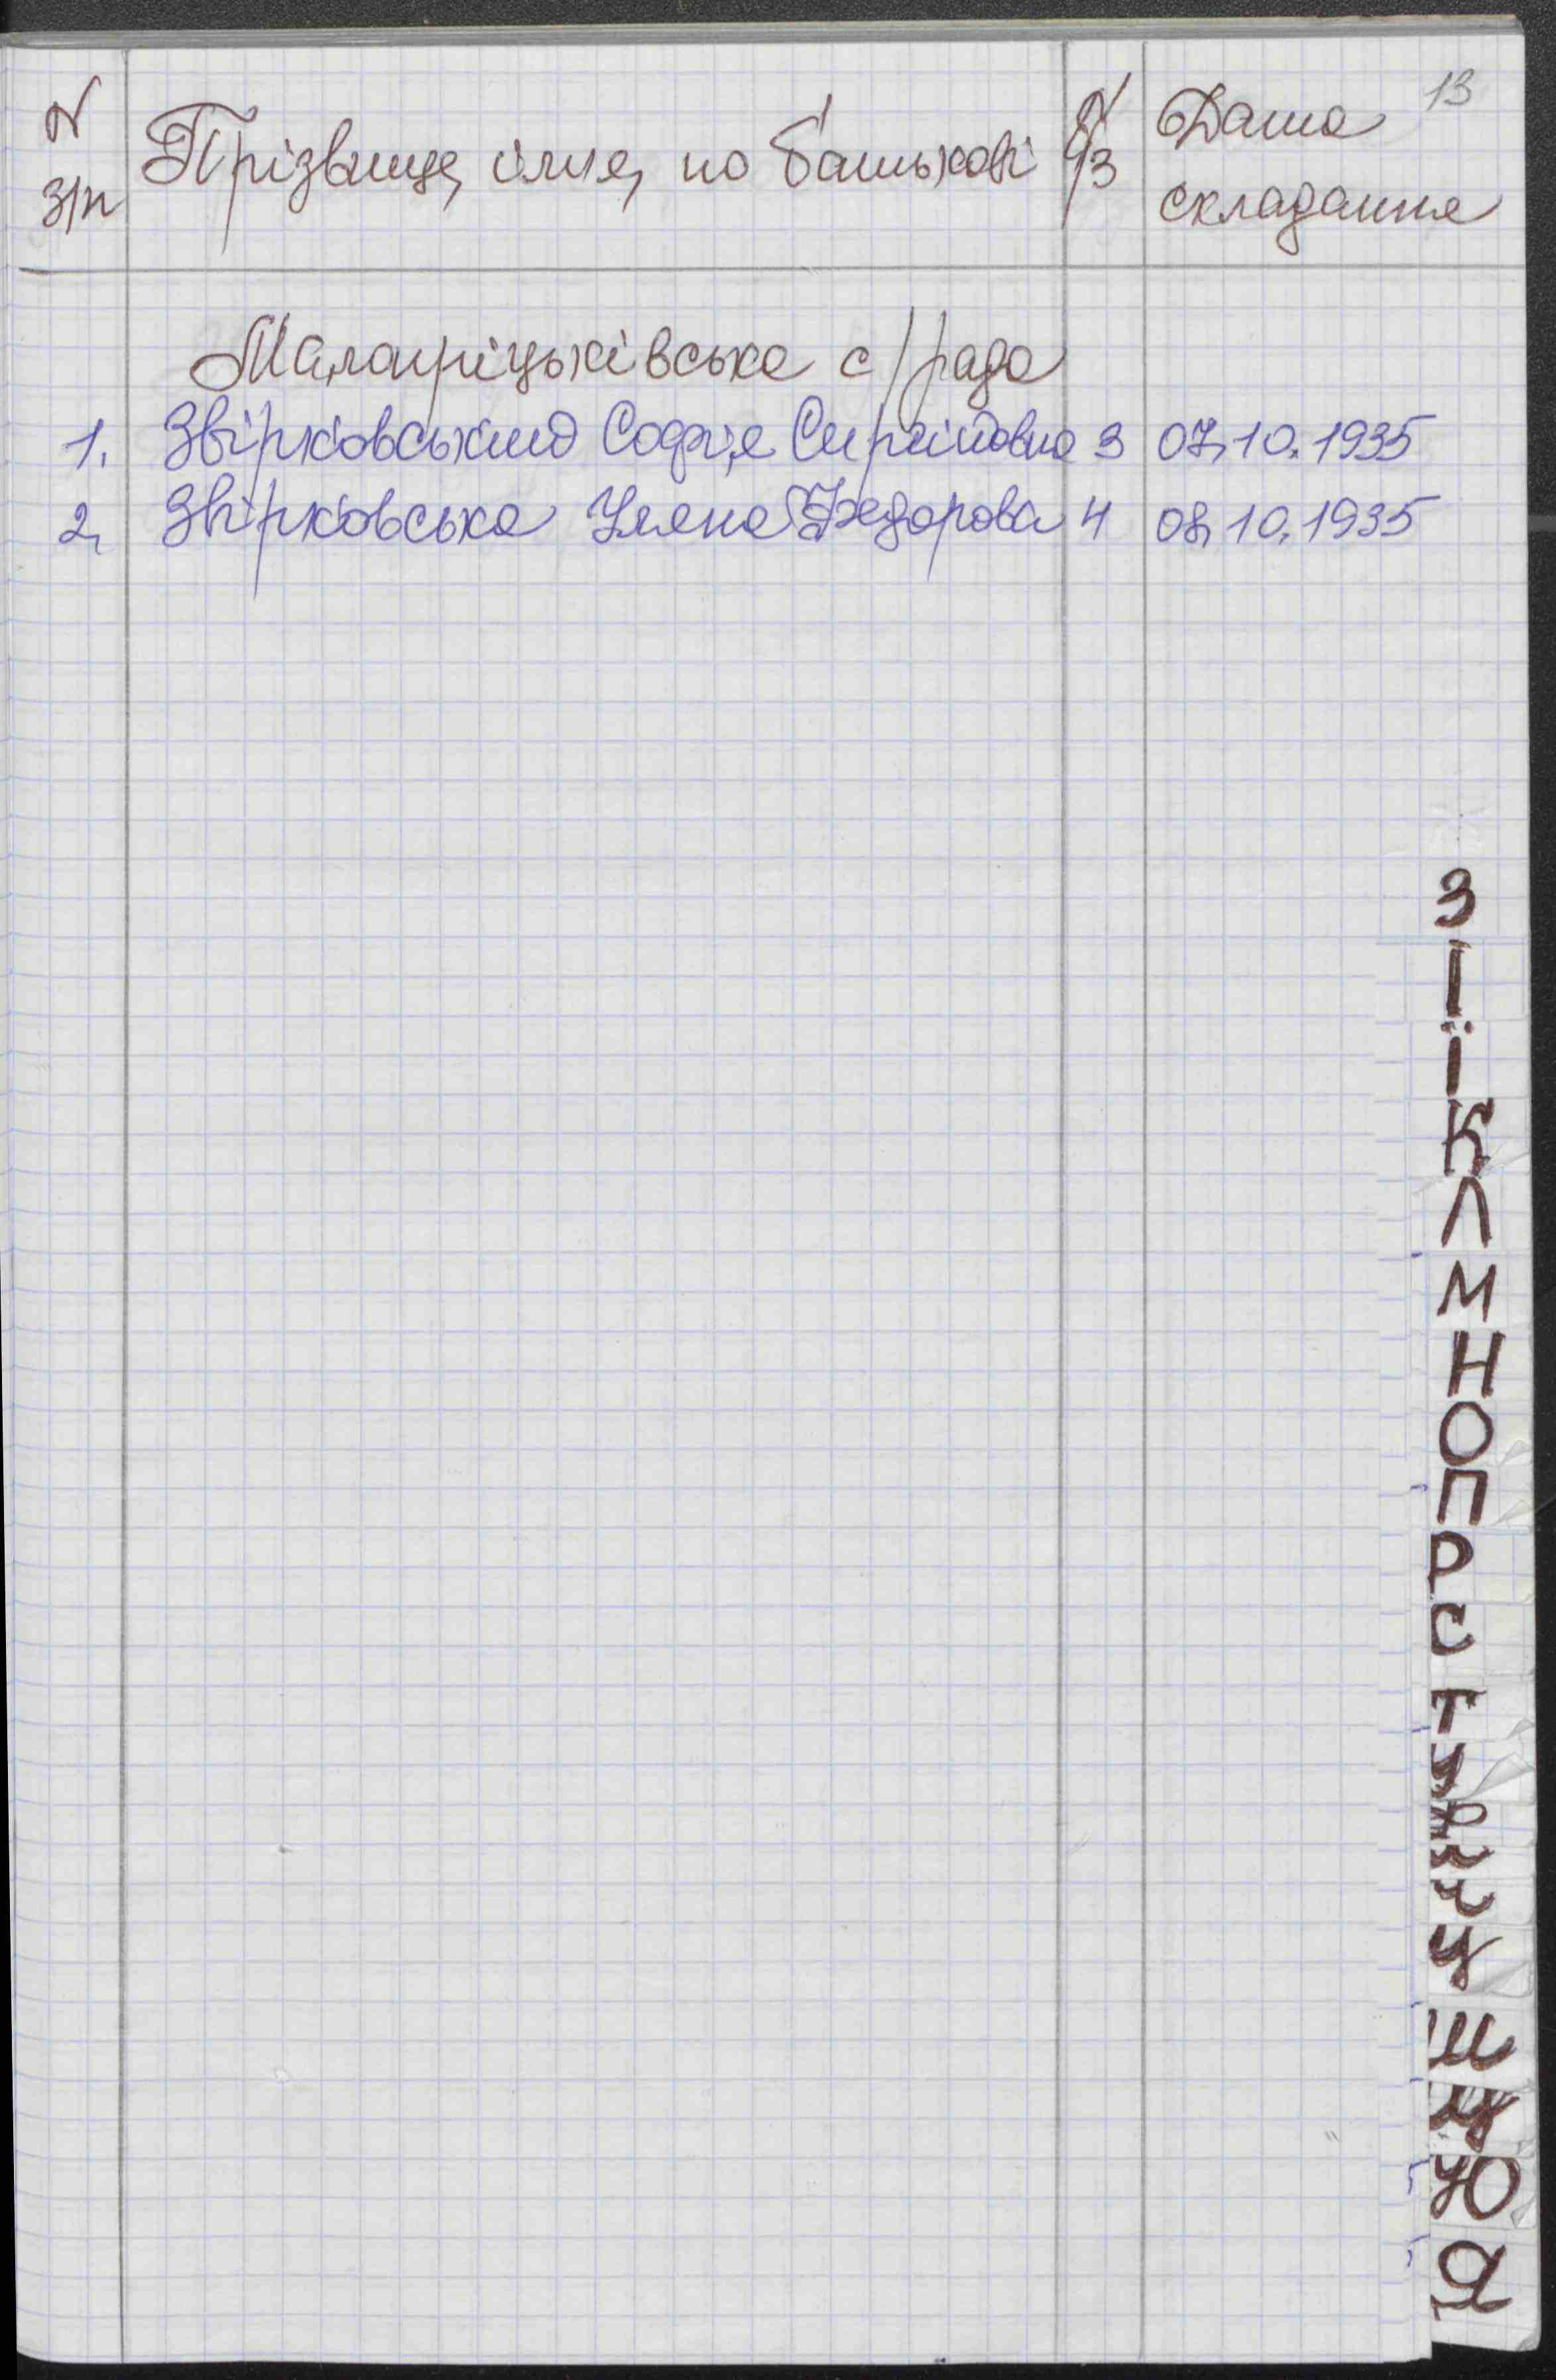 13
N з/п Прізвище, ім'я, по батькові N а/з Дата складання
Малоприцьківська с/рада
1. Звірковський Софія Сергіївна 3 07.10.1935
2. Звірковська Уляна Федорова 4 08.10.1935
З
І
Ї
К
Л
М
Н
О
П
Р
С
Т
У
Ф
Х
Ц
Ч
Ш
Щ
Ю
Я